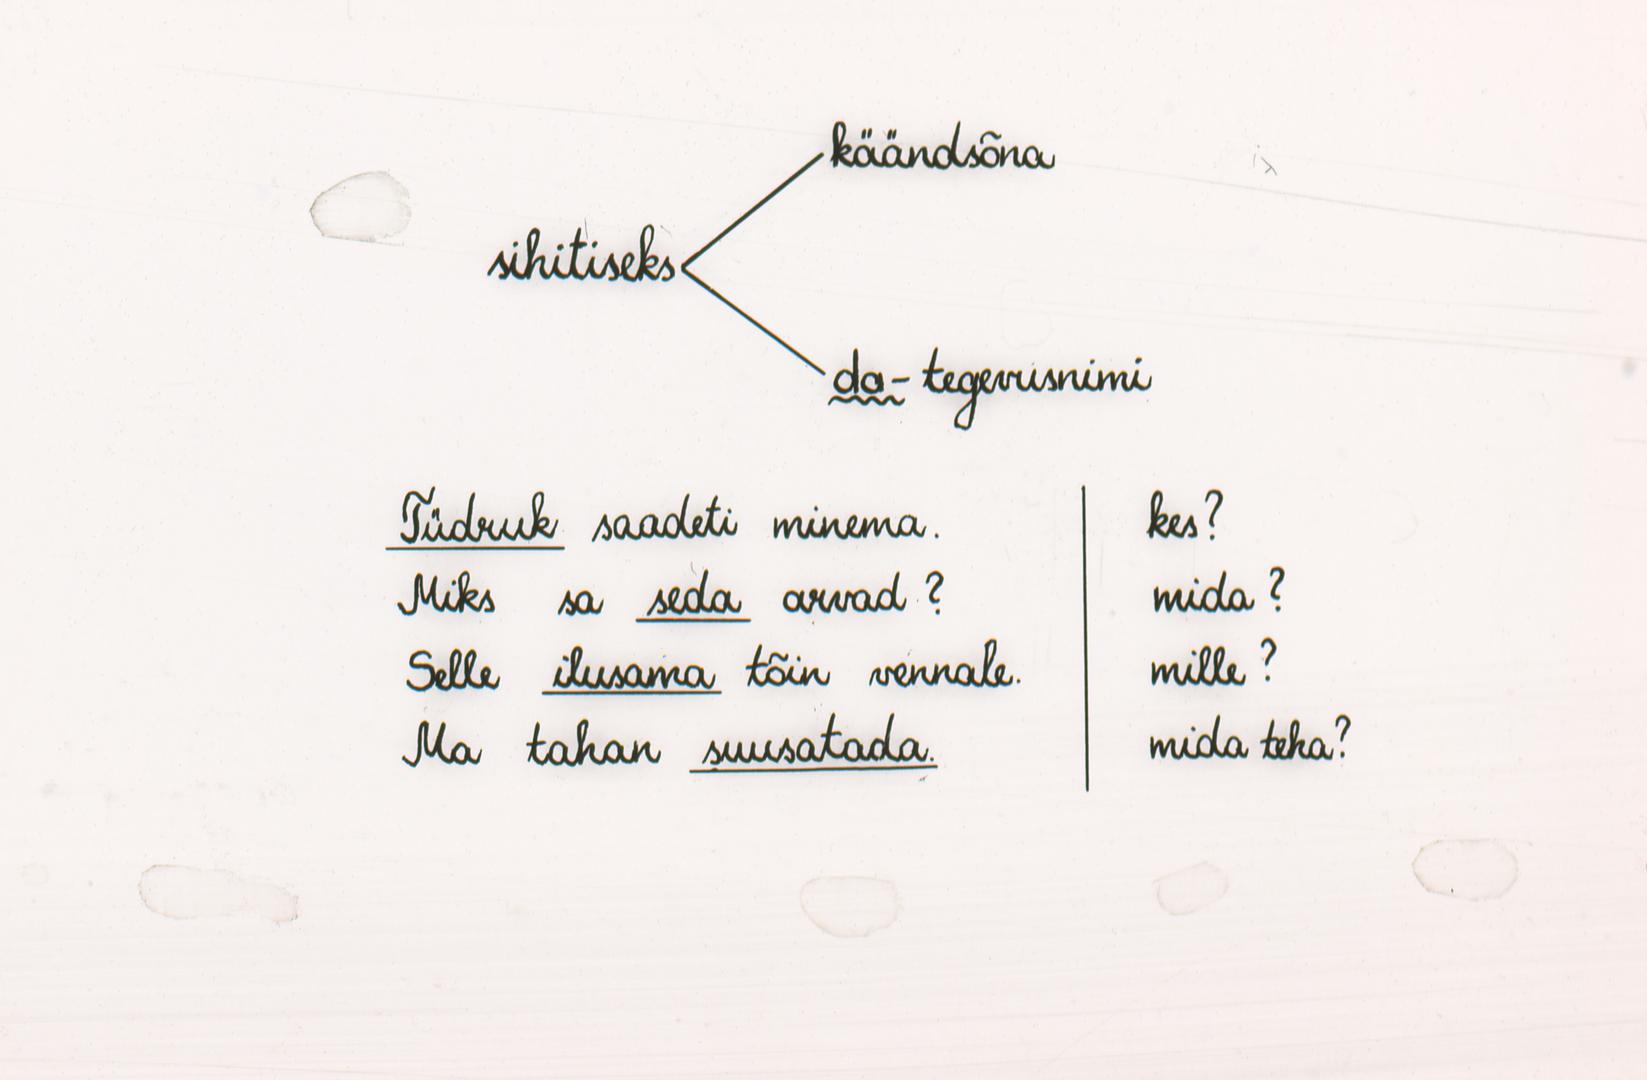 käändsõna
sihitiseks
da- tegevusnimi
Tüdruk saadeti minema. kes?
Miks sa seda arvad? mida?
Selle ilusama tõin vennale. mille?
Ma tahan suusatada. mida teha?